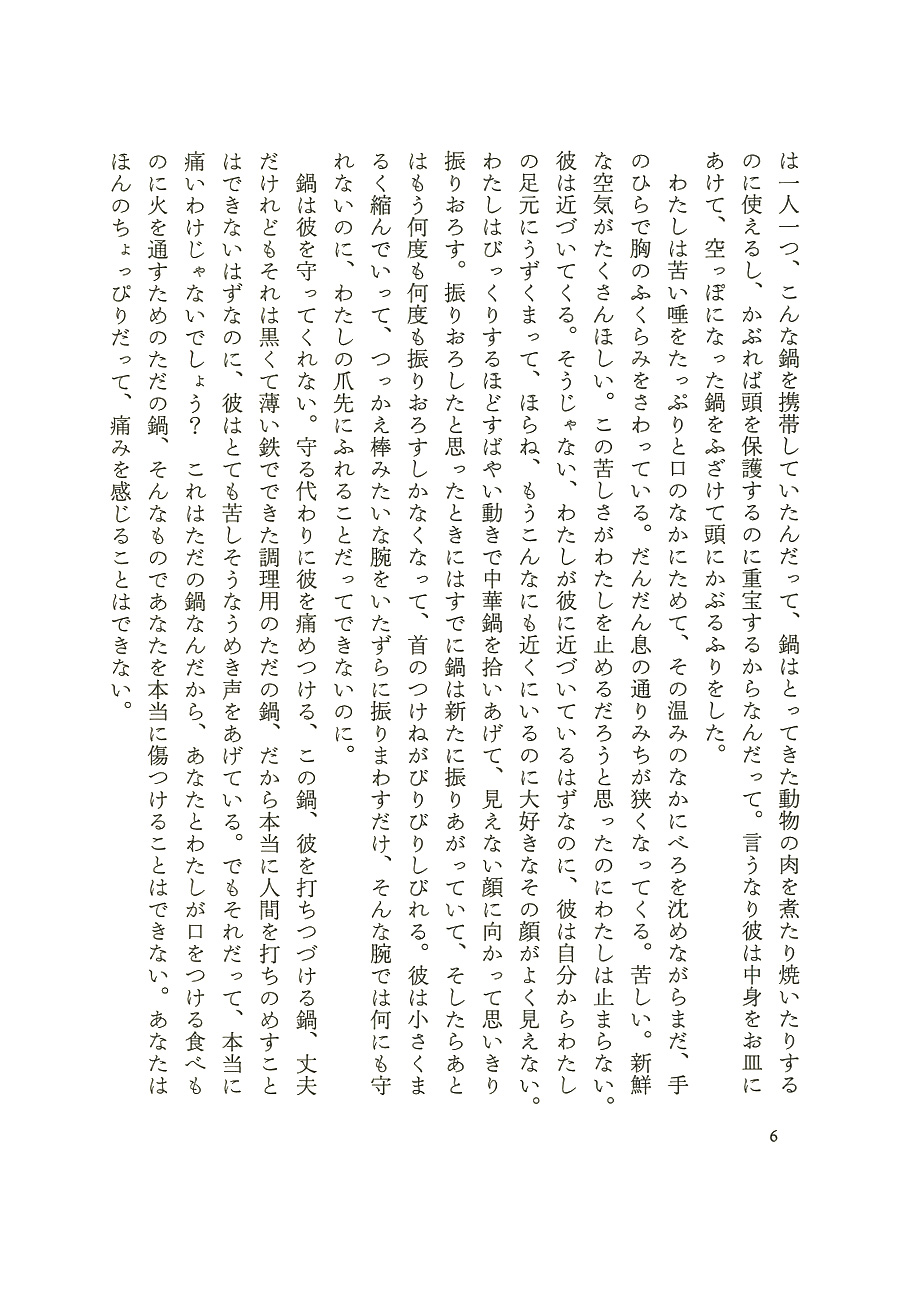 は一人一つ、こんな鍋を携帯していたんだって、鍋はとってきた動物の肉を煮たり焼いたりする
のに使えるし、かぶれば頭を保護するのに重宝するからなんだって。言うなり彼は中身をお皿に
あけて、空っぽになった鍋をふざけて頭にかぶるふりをした。
　わたしは苦い唾をたっぷりと口のなかにためて、その温みのなかにべろを沈めながらまだ、手
のひらで胸のふくらみをさわっている。だんだん息の通りみちが狭くなってくる。苦しい。新鮮
な空気がたくさんほしい。この苦しさがわたしを止めるだろうと思ったのにわたしは止まらない。
彼は近づいてくる。そうじゃない、わたしが彼に近づいているはずなのに、彼は自分からわたし
の足元にうずくまって、ほらね、もうこんなにも近くにいるのに大好きなその顔がよく見えない。
わたしはびっくりするほどすばやい動きで中華鍋を拾いあげて、見えない顔に向かって思いきり
振りおろす。振りおろしたと思ったときにはすでに鍋は新たに振りあがっていて、そしたらあと
はもう何度も何度も振りおろすしかなくなって、首のつけねがびりびりしびれる。彼は小さくま
るく縮んでいって、つっかえ棒みたいな腕をいたずらに振りまわすだけ、そんな腕では何にも守
れないのに、わたしの爪先にふれることだってできないのに。
　鍋は彼を守ってくれない。守る代わりに彼を痛めつける、この鍋、彼を打ちつづける鍋、丈夫
だけれどもそれは黒くて薄い鉄でできた調理用のただの鍋、だから本当に人間を打ちのめすこと
はできないはずなのに、彼はとても苦しそうなうめき声をあげている。でもそれだって、本当に
痛いわけじゃないでしょう？　これはただの鍋なんだから、あなたとわたしが口をつける食べも
のに火を通すためのただの鍋、そんなものであなたを本当に傷つけることはできない。あなたは
ほんのちょっぴりだって、痛みを感じることはできない。
6